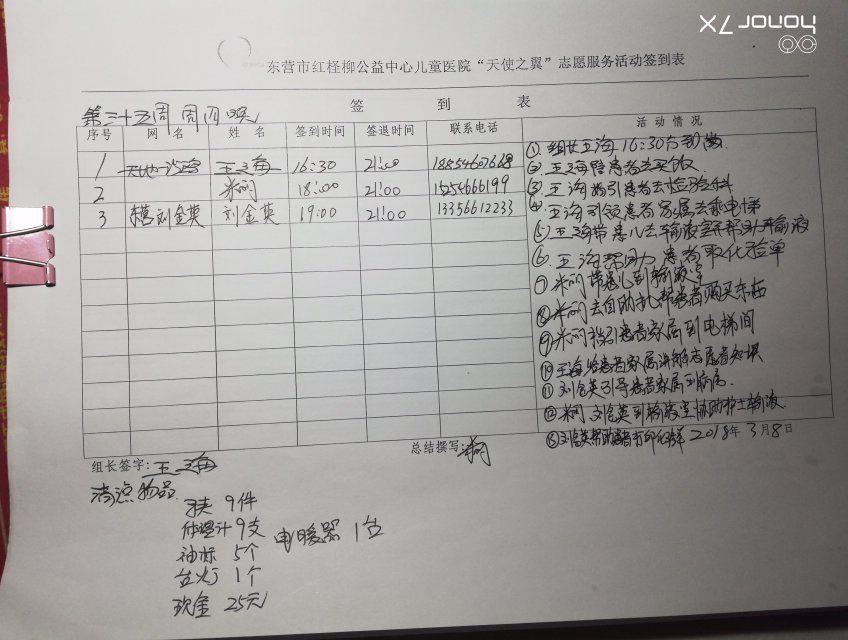 honor 7X
东营市红柽柳公益中心儿童医院“天使之翼”志愿服务活动签到表
第三十五周 周四 晚
签 到 表
序号 网 名 姓 名 签到时间 签退时间 联系电话 活 动 情 况
1 王海 16:30 21:00
2 18:00 21:00 15254666199
3 东营刘金英 刘金英 19:00 21:00 13356612233
① 组长王海 16:30
② 王海帮患者去买饭
③ 王海指引患者去检验科
④ 王海引领患者家属去乘电梯
⑤ 王海带患儿去输液室帮助开输液
⑥ 王海帮助患者取化验单
⑦ 带患儿到输液室
⑧ 去自助机帮患者购买东西
⑨ 指引患者家属到电梯间
⑩ 王海给患者家属讲解志愿者知识
⑪ 刘金英引导患者家属到病房.
⑫ 刘金英到输液室协助护士输液
⑬ 刘金英帮助患者打印 2018年 3月8日
组长签字: 王海
总结撰写:
清点物品
马夹 9件
体温计 9支 电暖器 1台
袖标 5个
台灯 1个
现金 25元